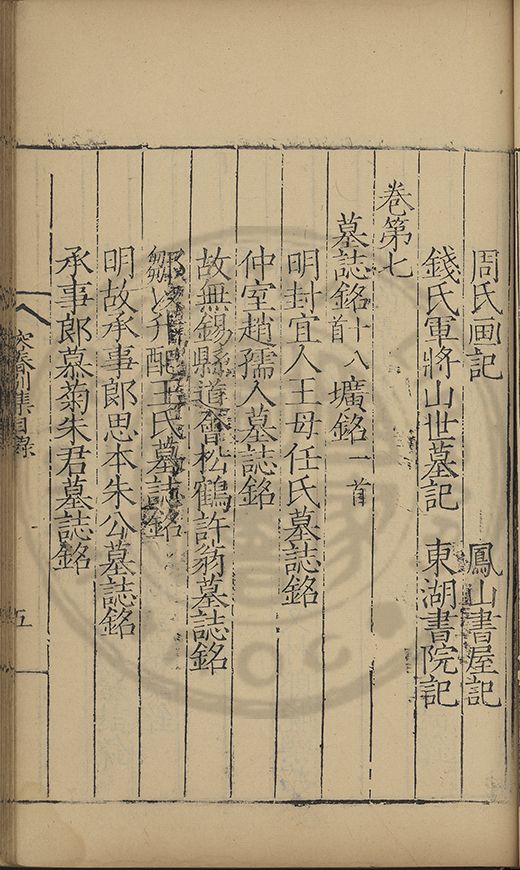 周氏画記　鳳山書屋記
錢氏軍將山世墓記　東湖書院記
卷第七
墓誌銘十八首 壙銘一首
明封宜人王母任氏墓誌銘
仲室趙孺人墓誌銘
故無錫縣道會松鶴許翁墓誌銘
配王氏墓誌銘
明故承事郎思本朱公墓誌銘
承事郎慕菊朱君墓誌銘
集目錄
五